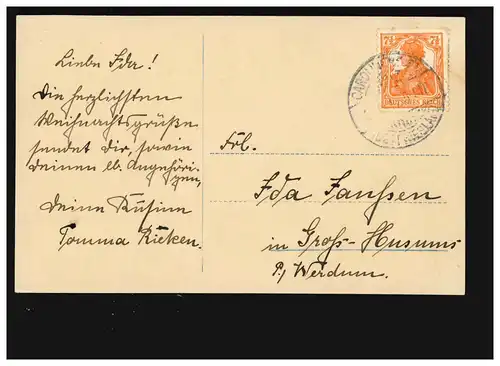 Liebe Ida!
Die herzlichsten
Weihnachtsgrüße
sendet Dir, sowie
deinen lb. Angehöri-
gen,
Deine Kusine
Tomma Rieken.
7½ 7½
DEUTSCHES REICH
Frl.
Ida Janssen
in Groß-Husums
P/ Werdum.